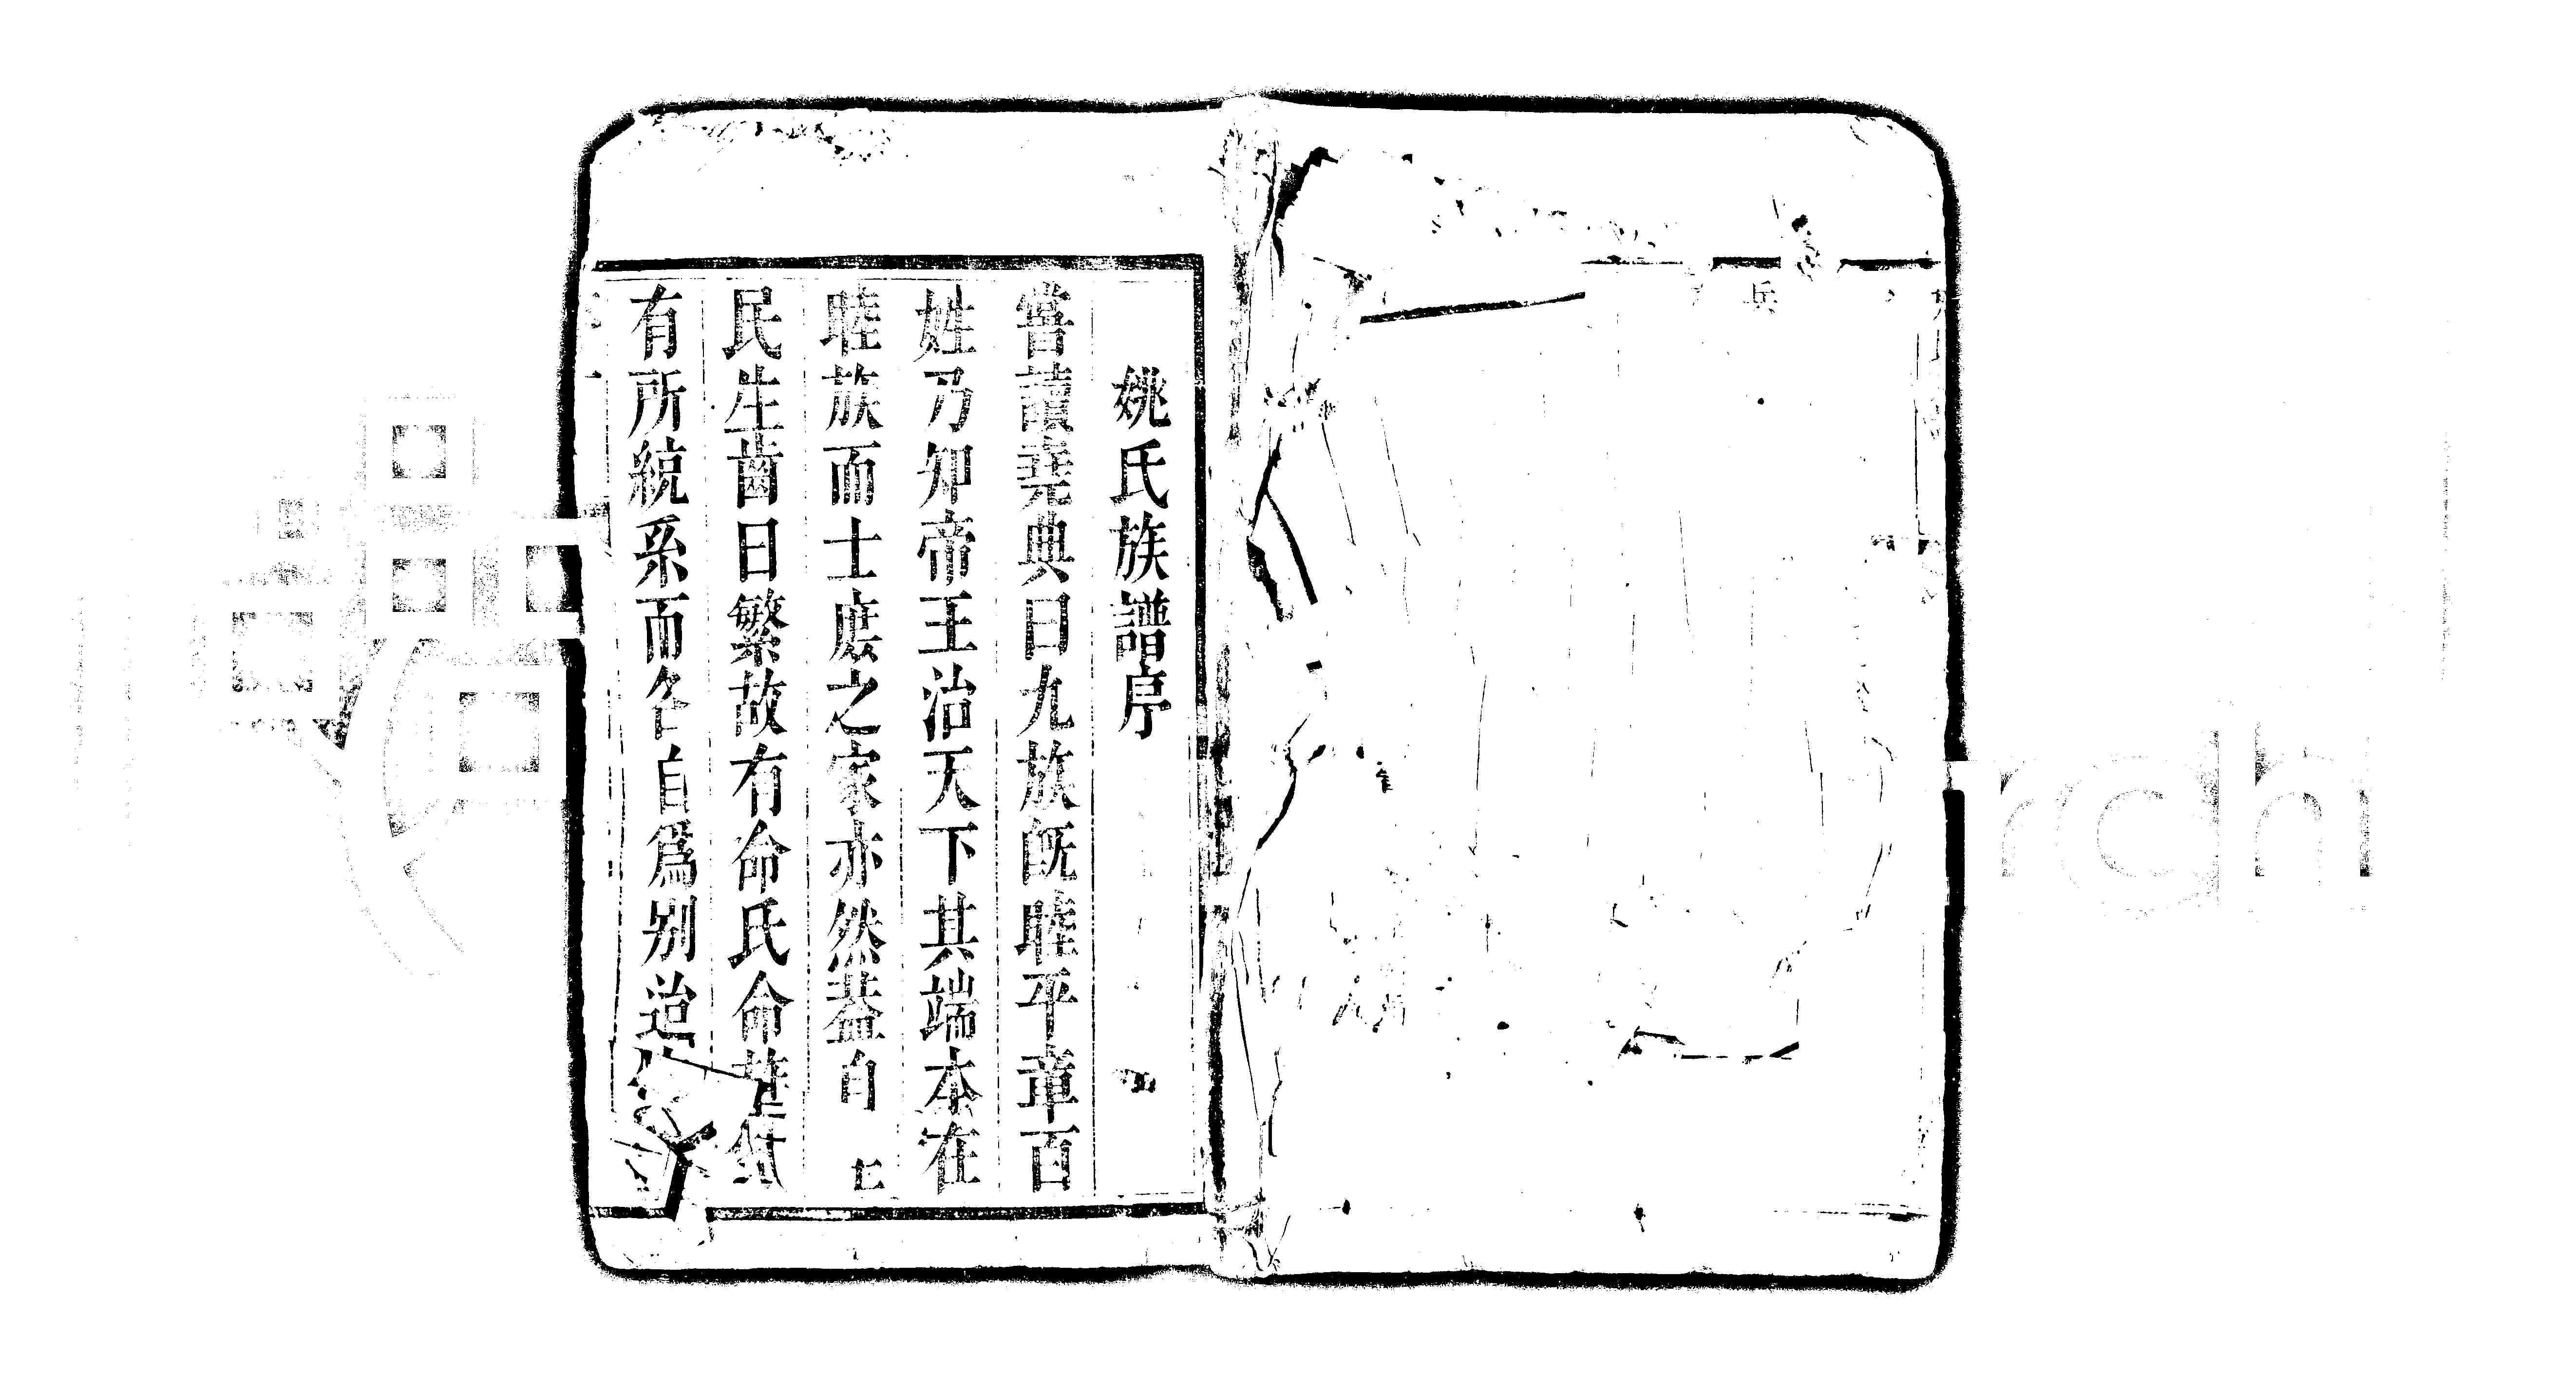 姚氏族譜序
嘗讀堯典曰九族旣睦平章百
姓乃知帝王治天下其端本在
睦族而士庶之家亦然葢自
民生齒日繁故有命氏命
有所統系而各自爲别迨